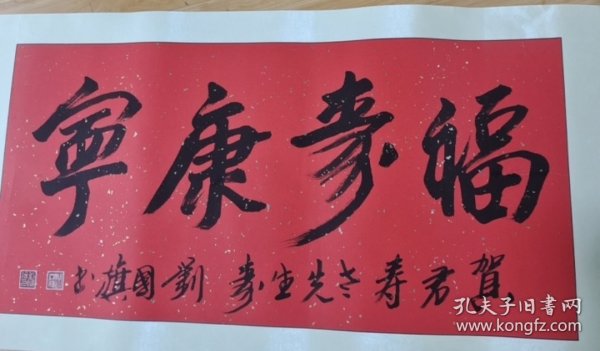 福壽康寧
賀君寿老先生壽 劉國旗书
孔夫子旧書网
www.kongfz.com